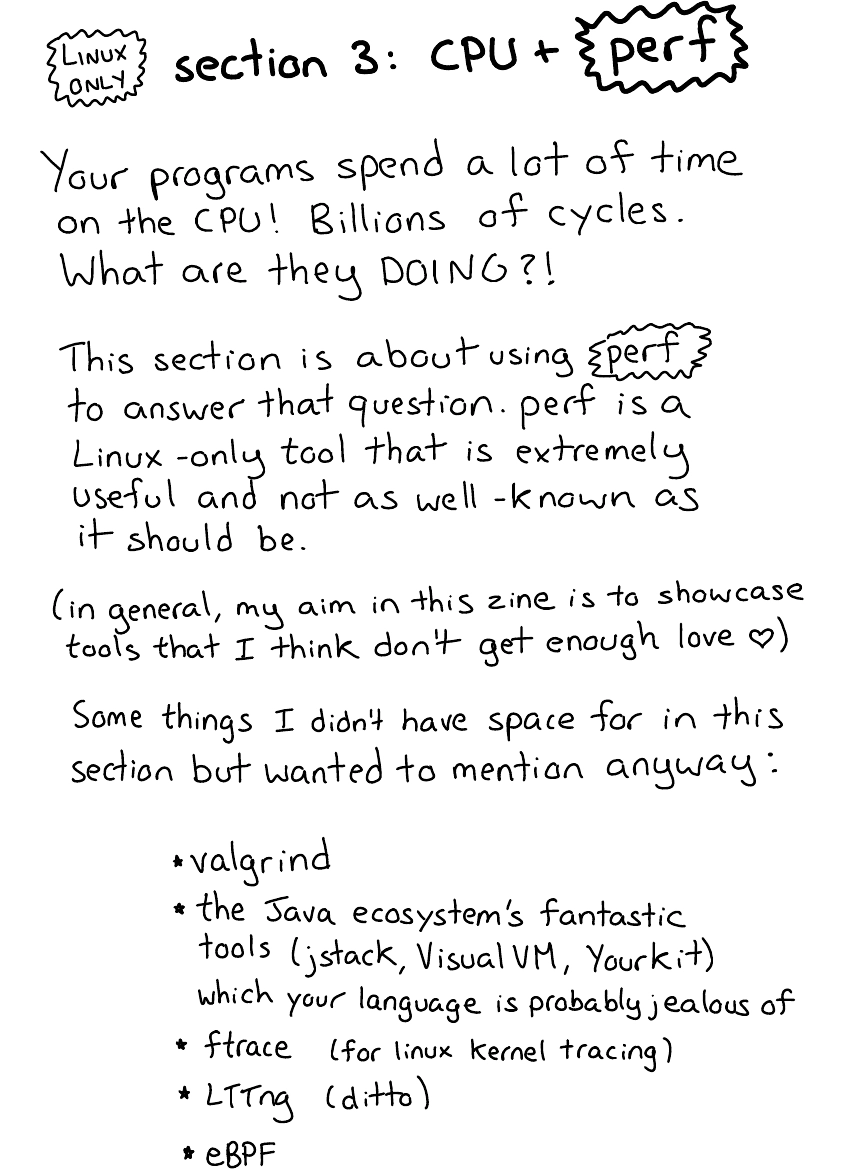 LINUX ONLY section 3: CPU + perf
Your programs spend a lot of time
on the CPU! Billions of cycles.
What are they DOING?!
This section is about using perf
to answer that question. perf is a
Linux-only tool that is extremely
useful and not as well-known as
it should be.
(in general, my aim in this zine is to showcase
tools that I think don't get enough love ♡)
Some things I didn't have space for in this
section but wanted to mention anyway:
* valgrind
* the Java ecosystem's fantastic
tools (jstack, VisualVM, Yourkit)
which your language is probably jealous of
* ftrace (for linux kernel tracing)
* LTTng (ditto)
* eBPF